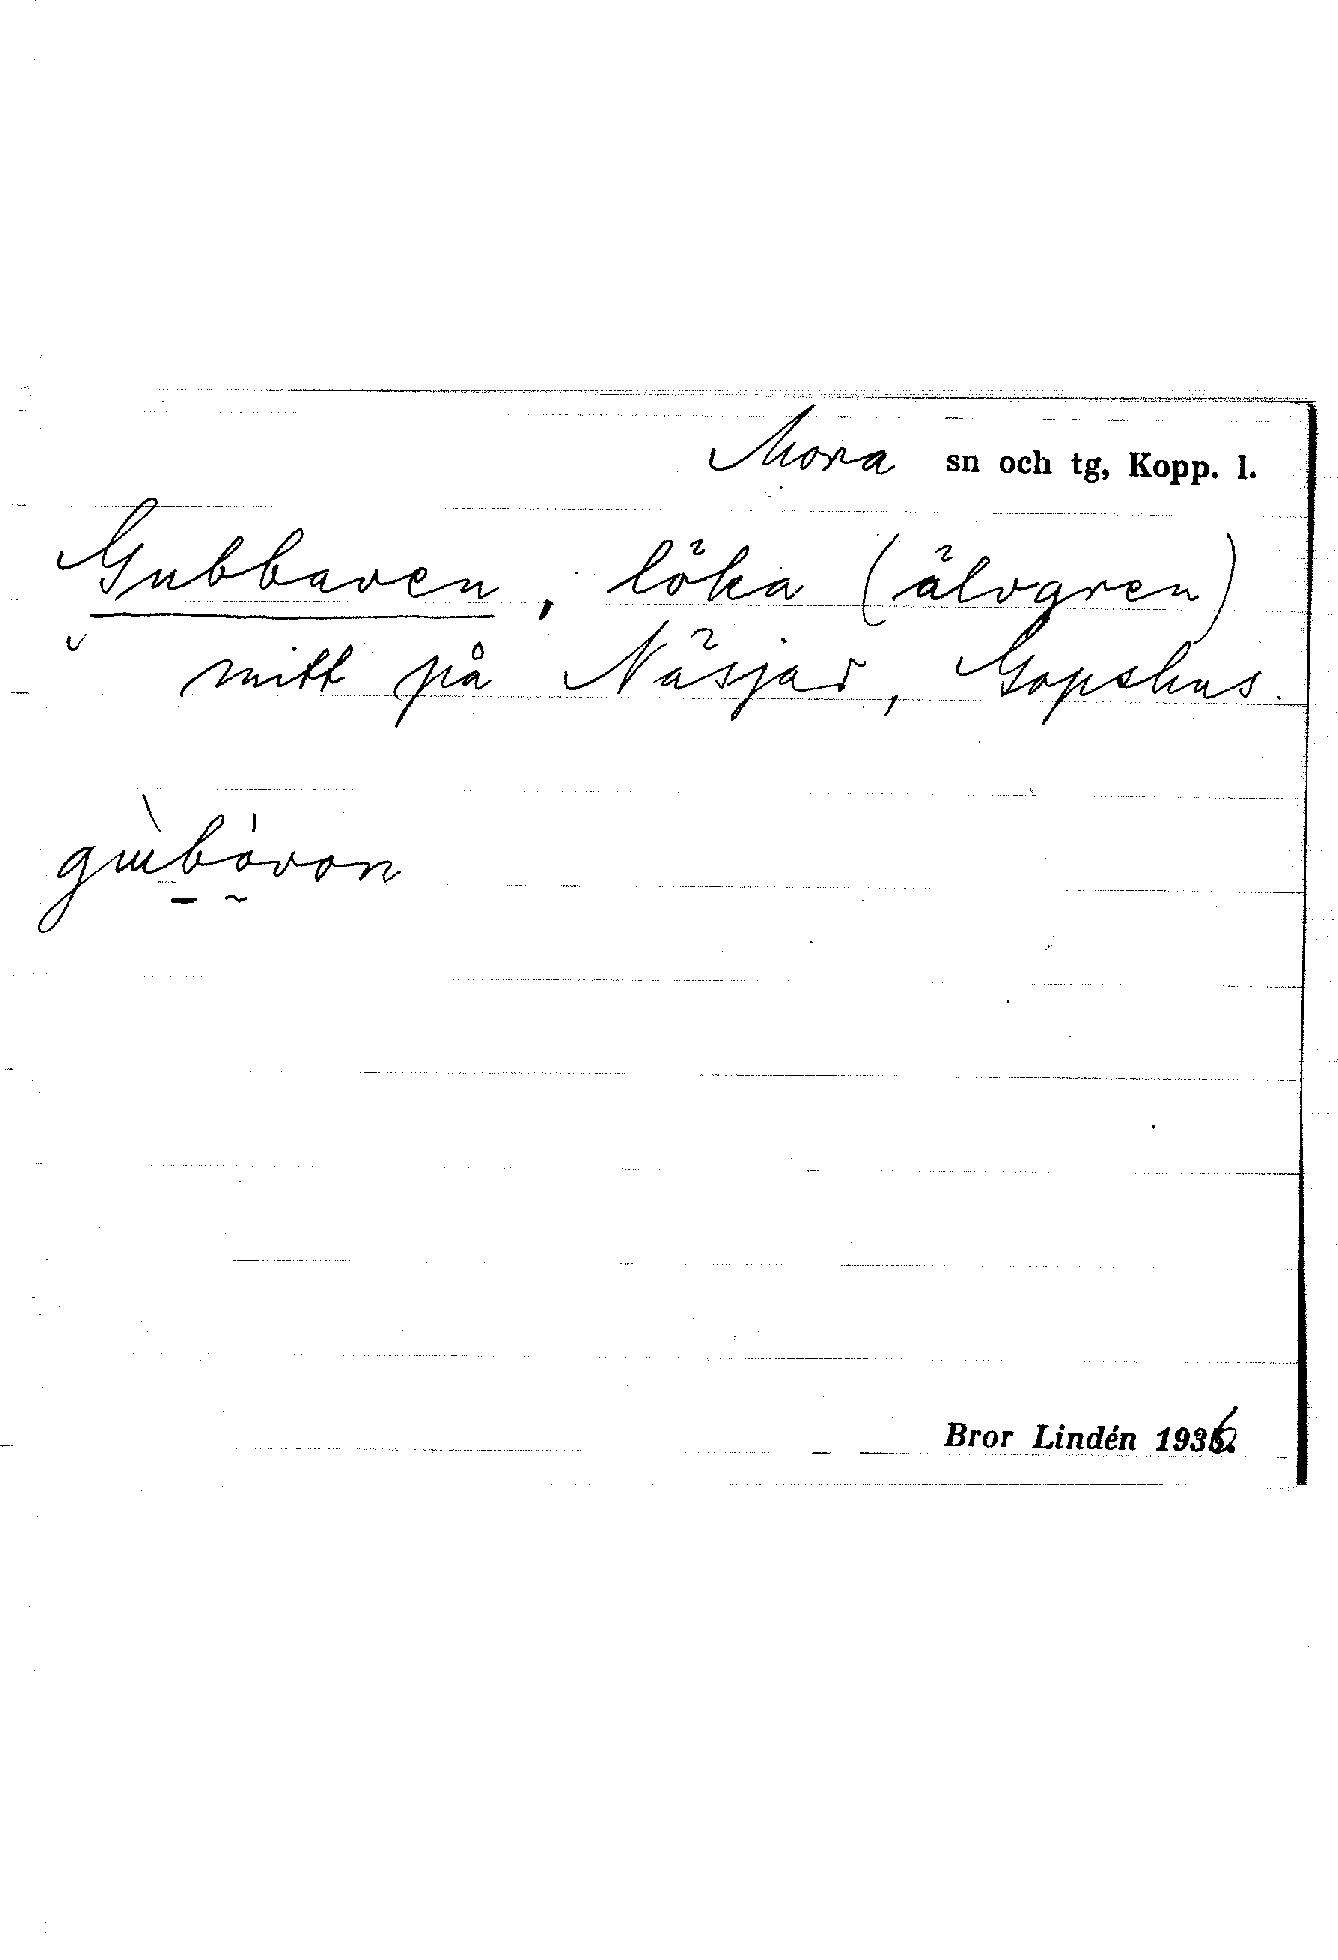 Mora sn och tg, Kopp. l.
Gubbaven, löka (älvgren)
mitt på Näsjar, Gopshus.
Bror Lindén 1936.